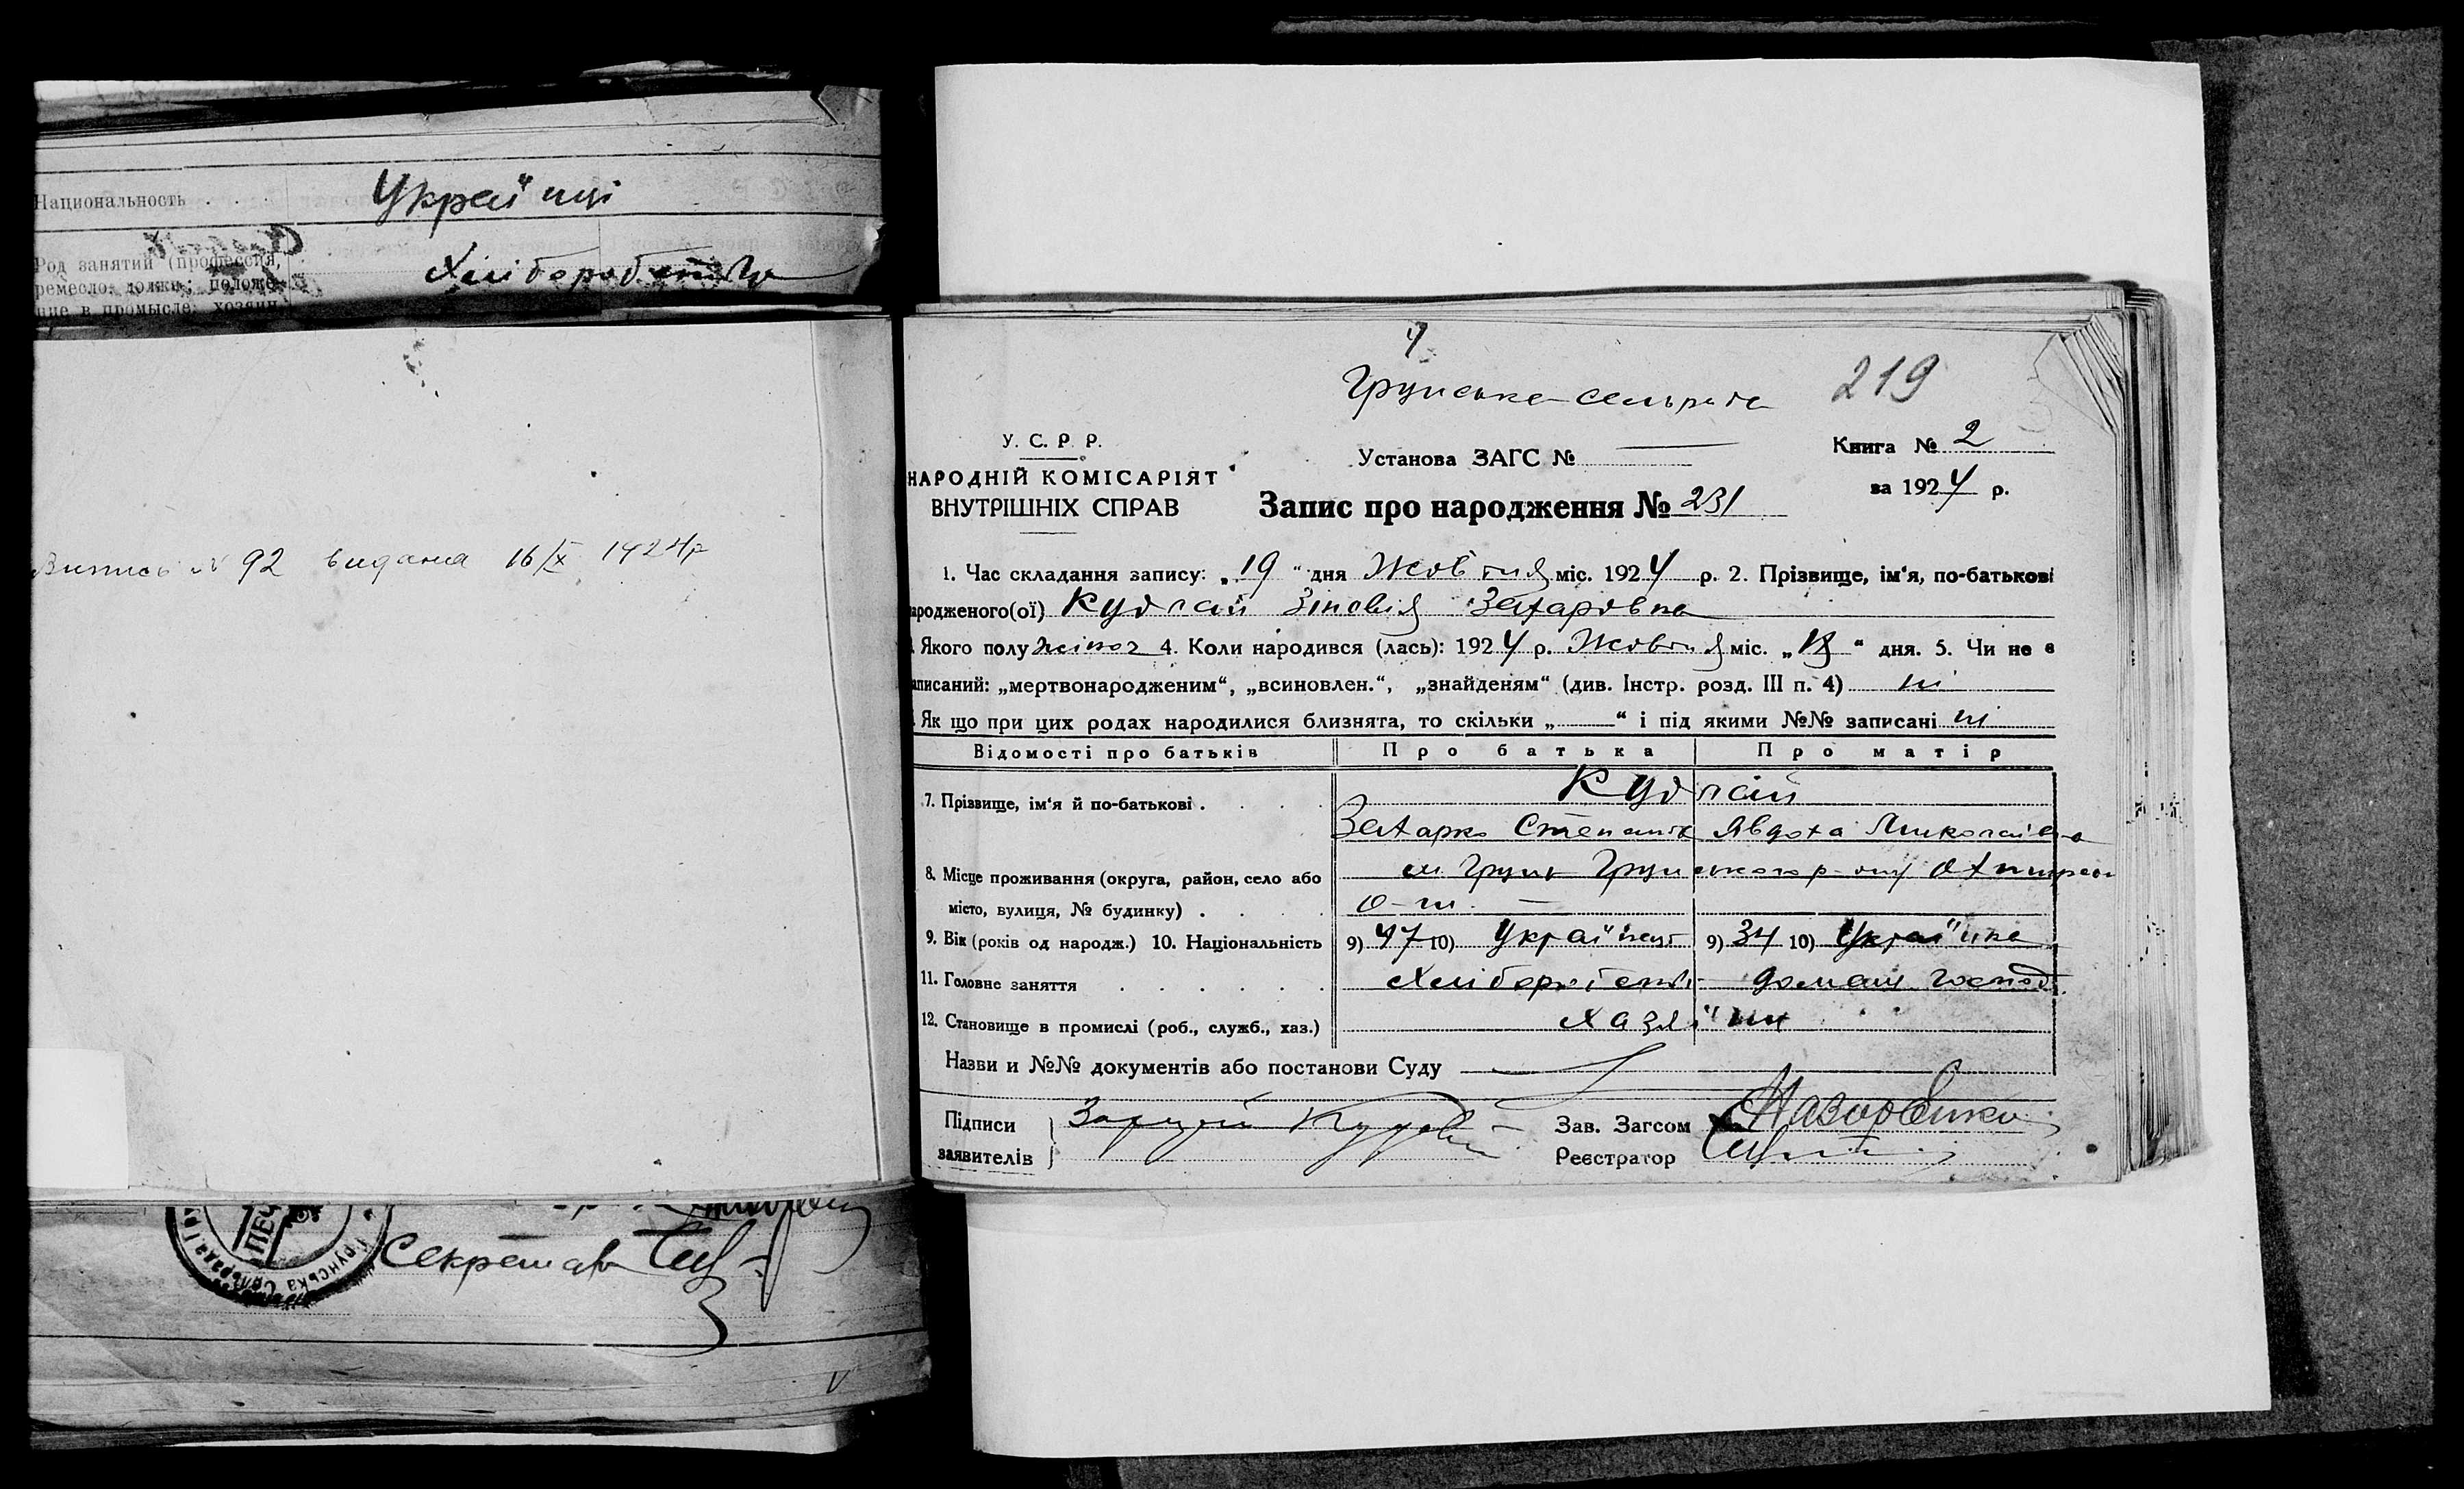 Национальность . . . Украйнці
Род занятий (профессия, Хліборобство
ремесло, должн; положе-
ние в промысле: хозяин,
Випись № 92 видана 16/X 1924 р
Секретар
Грунська сельрада
219
У. С. Р. Р.
НАРОДНІЙ КОМІСАРІЯТ
ВНУТРІШНІХ СПРАВ
Установа ЗАГС №
Книга № 2
за 1924 р.
Запис про народження № 231
1. Час складання запису: „19“ дня Жовтня міс. 1924 р. 2. Прізвище, ім‘я, по-батькові
ародженого(ої) Кудлай Зіновія Захаровна
Якого полу жіноч 4. Коли народився (лась): 1924 р. Жовтня міс. „ “ дня. 5. Чи не є
аписаний: „мертвонародженим“, „всиновлен.“, „знайденям“ (див. Інстр. розд. III п. 4) ні
Як що при цих родах народилися близнята, то скільки „—“ і під якими №№ записані ні
Відомості про батьків Про батька Про матір
7. Прізвище, ім‘я й по-батькові . Кудлай
Захарко Степанів Явдоха Миколаївна
8. Місце проживання (округа, район, село або м. Грунь Грунського р-ну Охтирськ
місто, вулиця, № будинку) . о-ги. —
9. Вік (років од народж.) 10. Національність 9) 47 10) Україінець 9) 34 10) Украінка
11. Головне заняття Хліборобство домашн господ.
12. Становище в промислі (роб., служб., хаз.) Хазяїн
Назви и №№ документів або постанови Суду
Підписи
заявителів
Зав. Загсом
Реєстратор